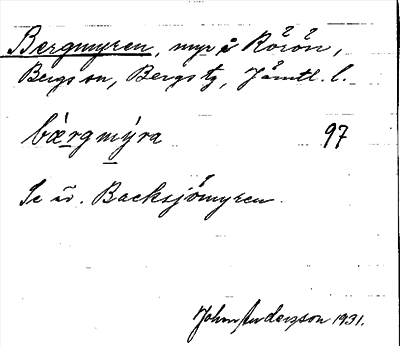 Bergmyren, myr å Rörön,
Bergs sn, Bergs tg, Jämtl. l.
bærgmýra 97
Se u. Backsjömyren.
Johan Anderzson 1931.